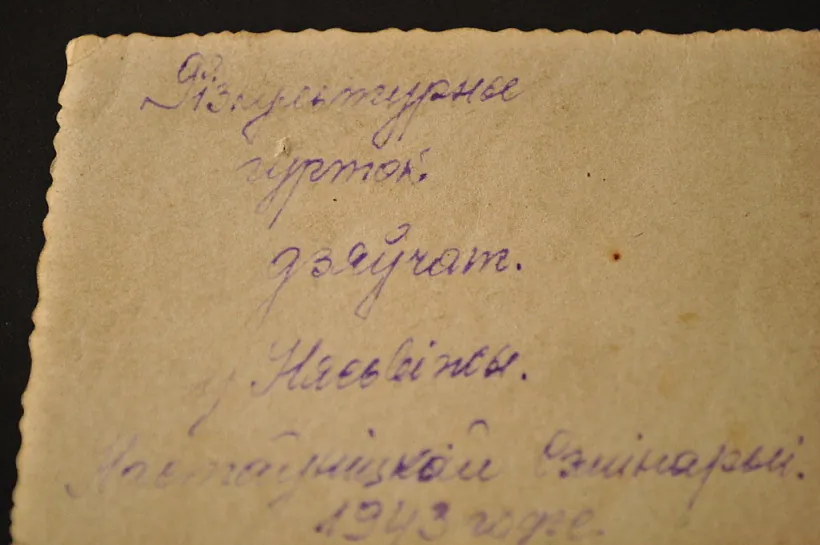 Фізкультурны
гурток
дзяўчат.
у Нясьвіжы.
Настаўніцкай Сэмінарыі.
1943 годзе.